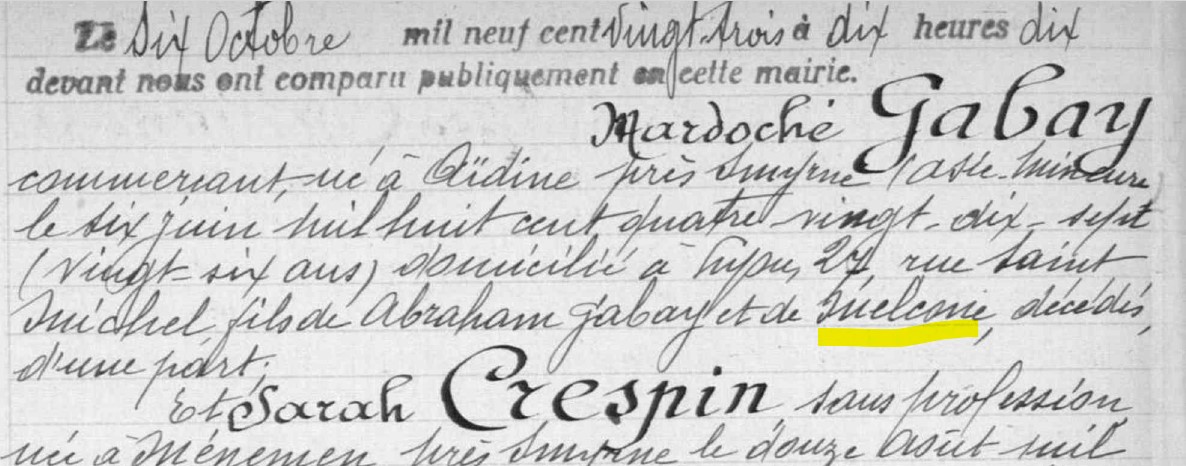 Le Six Octobre mil neuf cent Vingt-trois à dix heures dix
devant nous ont comparu publiquement en cette mairie.
Mardoché Gabay
commerçant, né à Aïdine près Smyrne (asie-mineure
le six juin mil huit cent quatre vingt-dix-sept
(vingt-six ans) domicilié à Lyon, 27, rue Saint
Michel, fils de Abraham Gabay et de décédés,
d'une part;
Et Sarah Crespin sans profession
née à Ménemen près Smyrne le douze Août mil